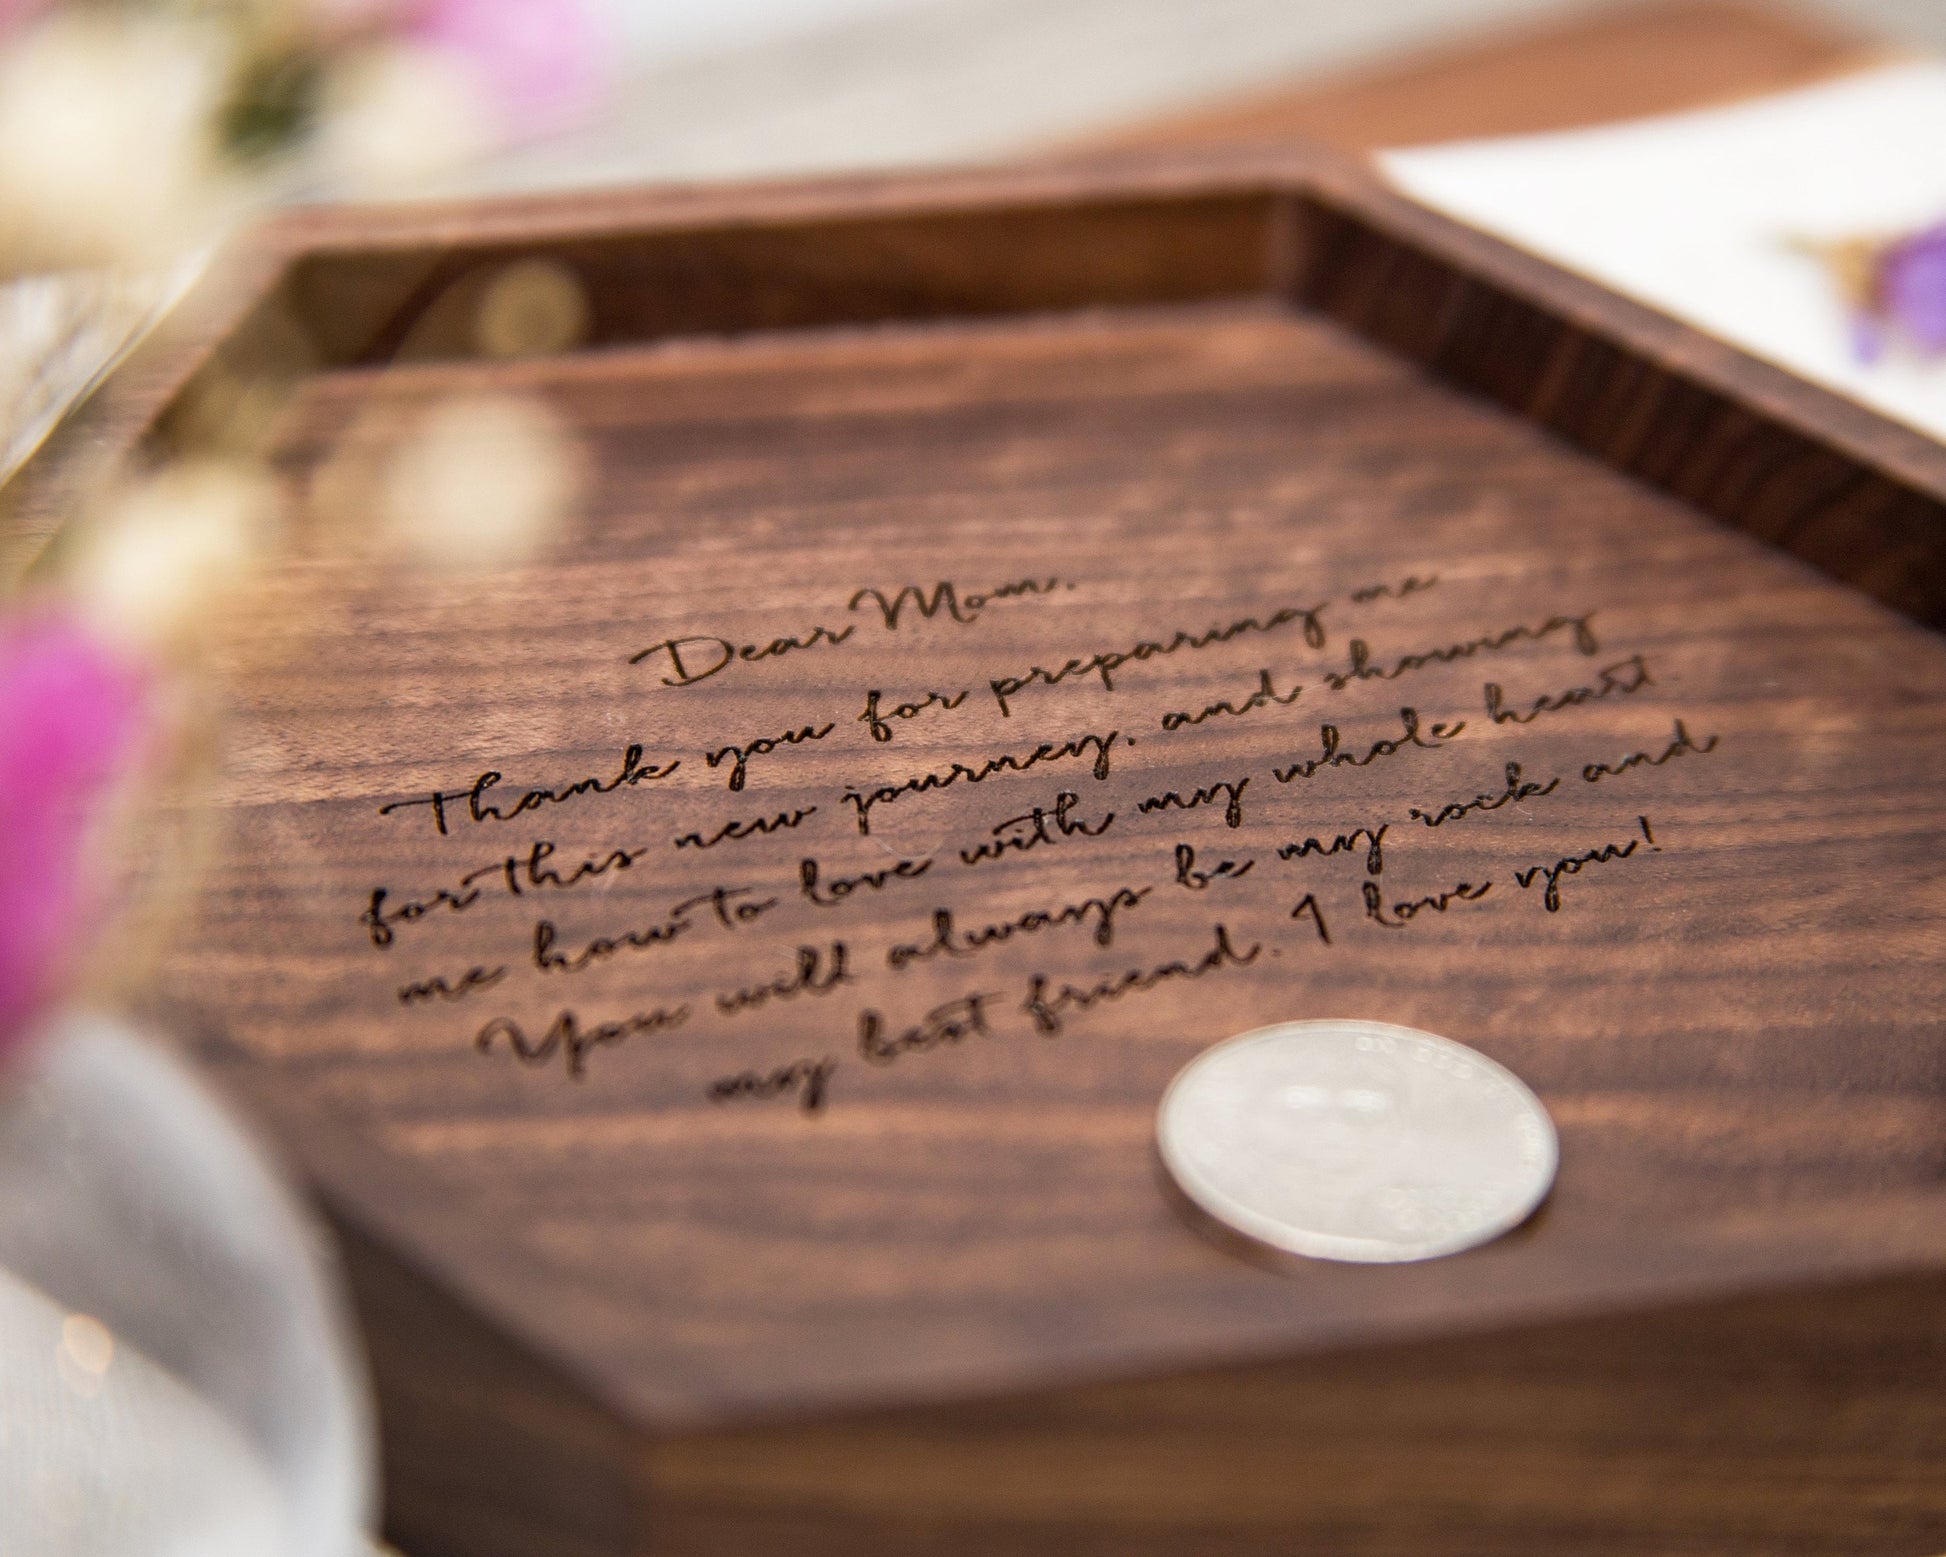 Dear Mom,
Thank you for preparing me
for this new journey, and showing
me how to love with my whole heart.
You will always be my rock and
my best friend. I love you!